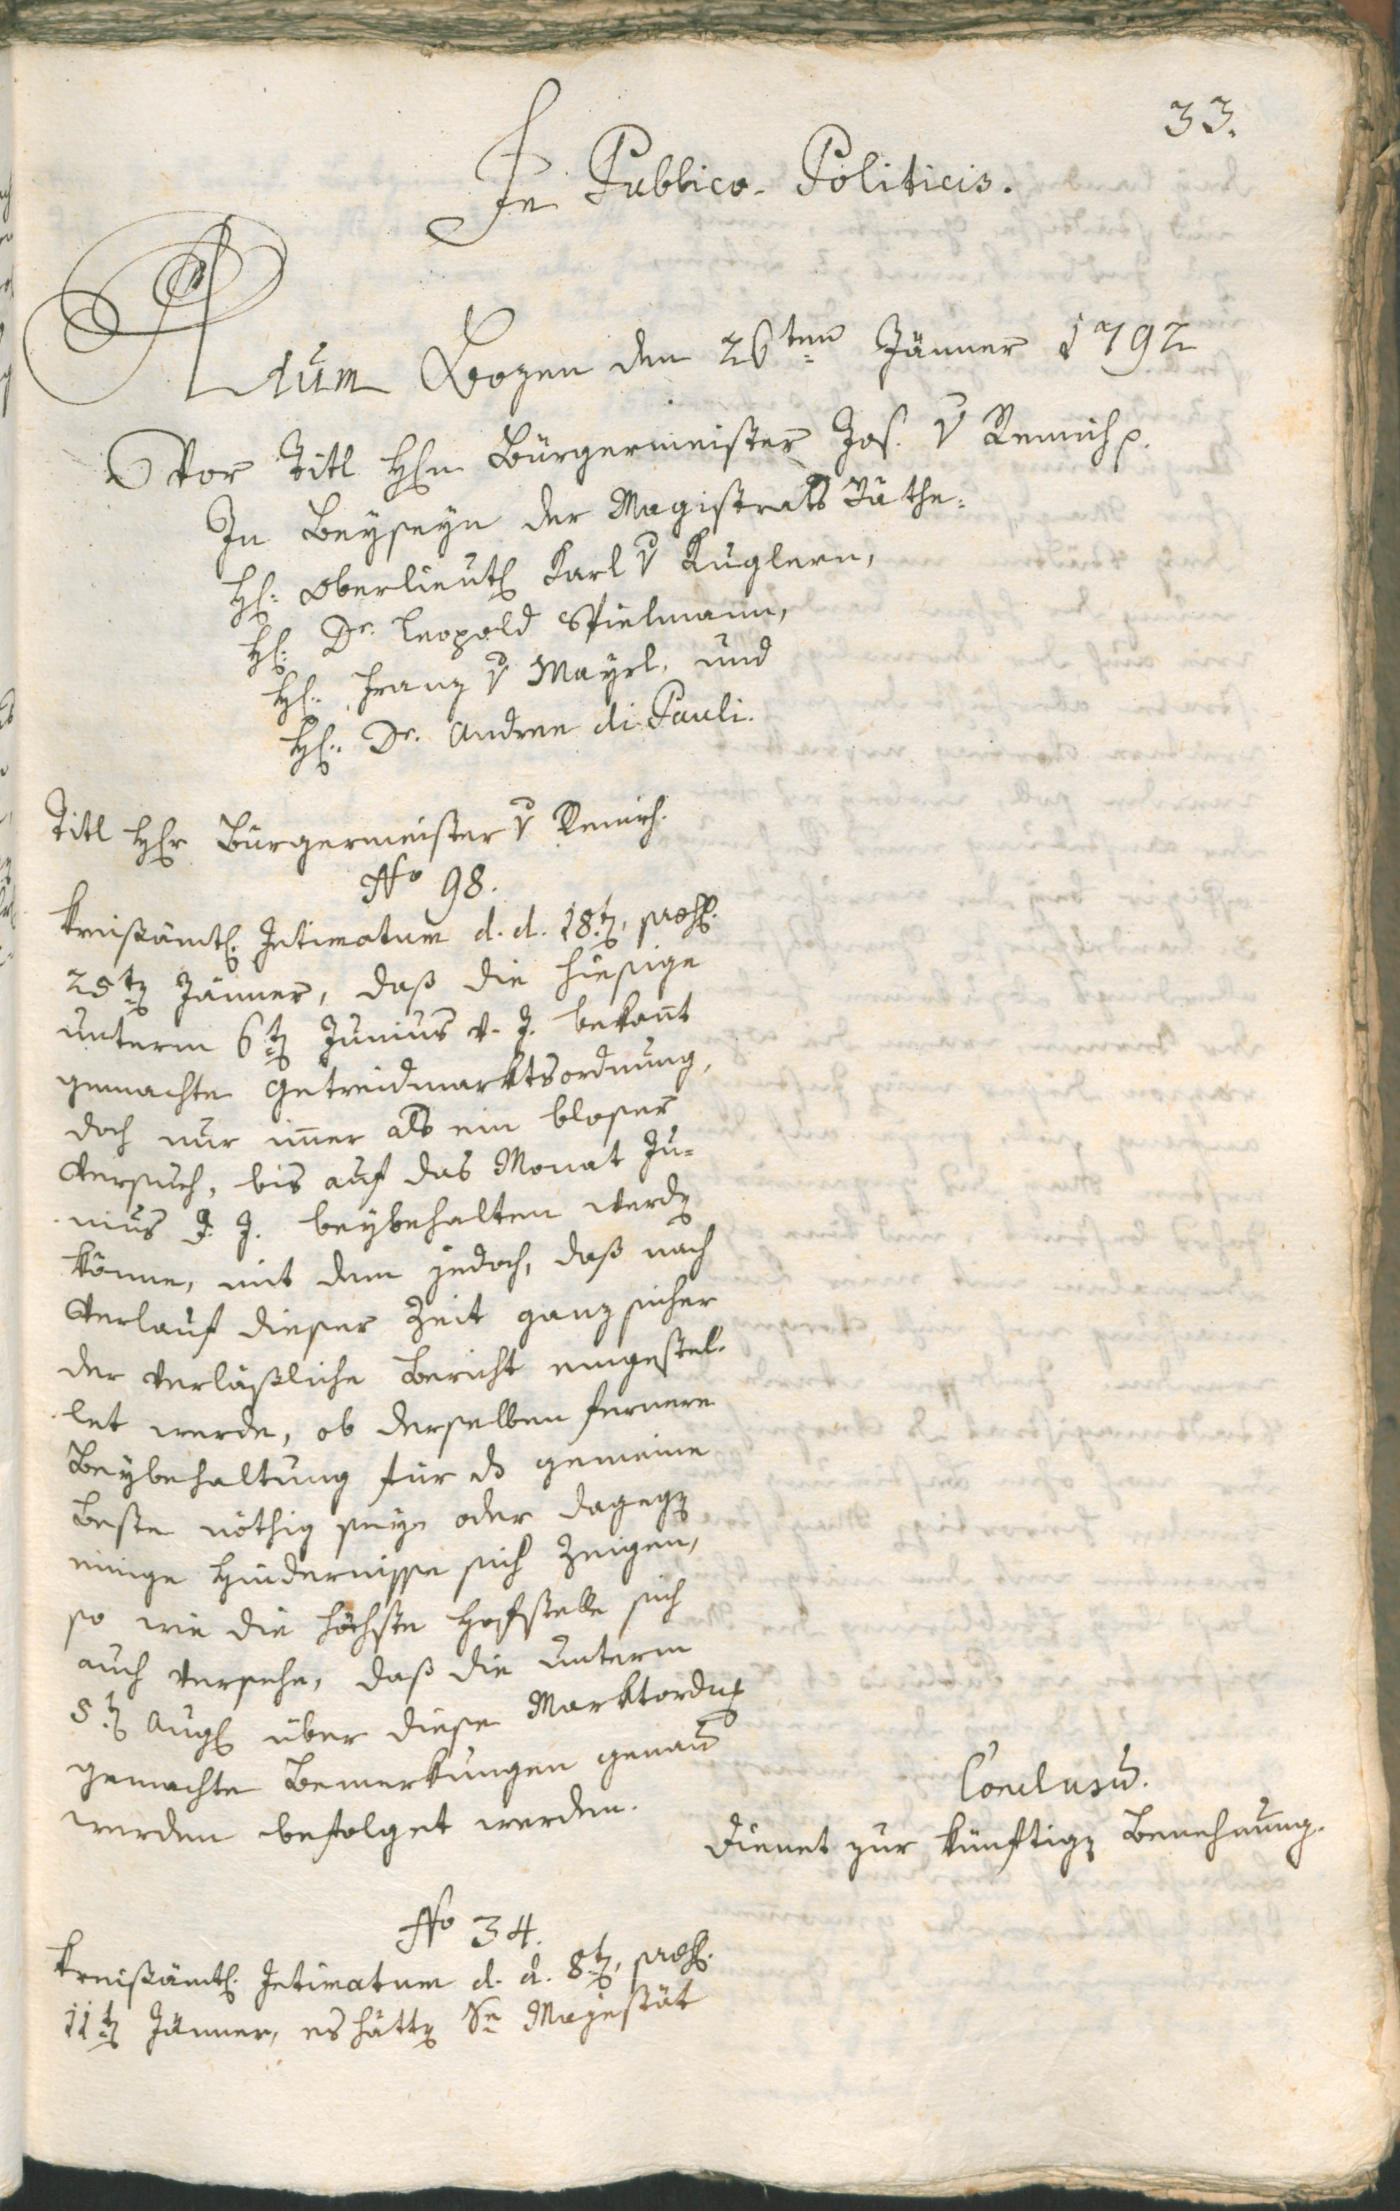 33.
In Publico-Politicis.
Actum Bozen den 26ten Jänner 1792
Vor Titl Hn Bürgermeister Jos. v Remich p.
In Beyseyn der Magistrats Räthe:
H: Oberlieut Karl v Kuglern,
H: Dr. Leopold Spielmann,
H: Franz v Mayrl, und
H: Dr. Andree di Pauli.
Titl Hr Bürgermeister v Remich.
No 98.
Kreisämtl. Intimatum d. d. 18t, præs.
25t Jänner, daß die hiesige
unterm 6t Junius v. J. bekannt
gemachte Getreidmarktsordnung,
doch nur immer als ein bloser
Versuch, bis auf das Monat Ju-
nius d. J. beybehalten werden
könne, mit dem jedoch, daß nach
Verlauf dieser Zeit ganz sicher
der verläßliche Bericht eingestel-
let werde, ob derselben fernere
Beybehaltung für das gemeine
Beste nöthig seye oder dagegen
einige Hindernisse sich zeigen,
so wie die höchste Hofstelle sich
auch versehe, daß die unterm
5t Aug über diese Marktordng
gemachte Bemerkungen genau
werden befolget werden.
Conclusum.
Dienet zur künftigen Benehmung.
No 34.
Kreisämtl. Intimatum d. d. 8t, præs.
11t Jänner, es hätten Se Majestät